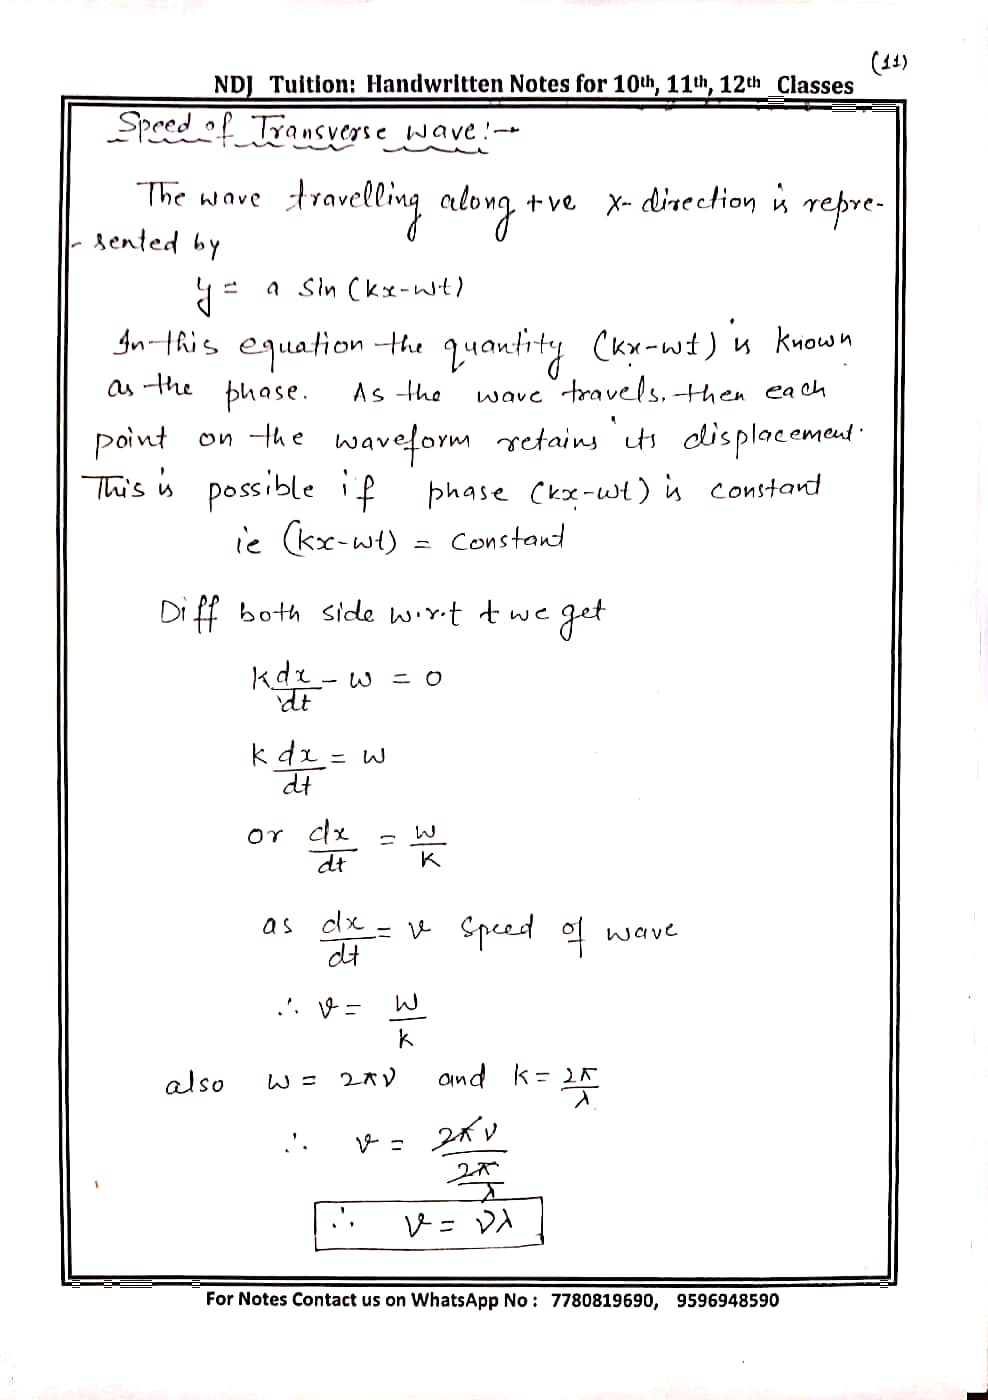 (11)
NDJ Tuition: Handwritten Notes for 10th, 11th, 12th Classes
Speed of Transverse wave:-
The wave travelling along +ve x-direction is repre-
-sented by
y = a sin (kx-wt)
In this equation the quantity (kx-wt) is known
as the phase. As the wave travels, then each
point on the waveform retains its displacement.
This is possible if phase (kx-wt) is constant
ie (kx-wt) = constant
Diff both side w.r.t t we get
k dx/dt - w = 0
k dx/dt = w
or dx/dt = w/k
as dx/dt = v speed of wave
∴ v = w/k
also w = 2πν and k = 2π/λ
∴ v = 2πν/(2π/λ)
∴ v = νλ
For Notes Contact us on WhatsApp No : 7780819690, 9596948590